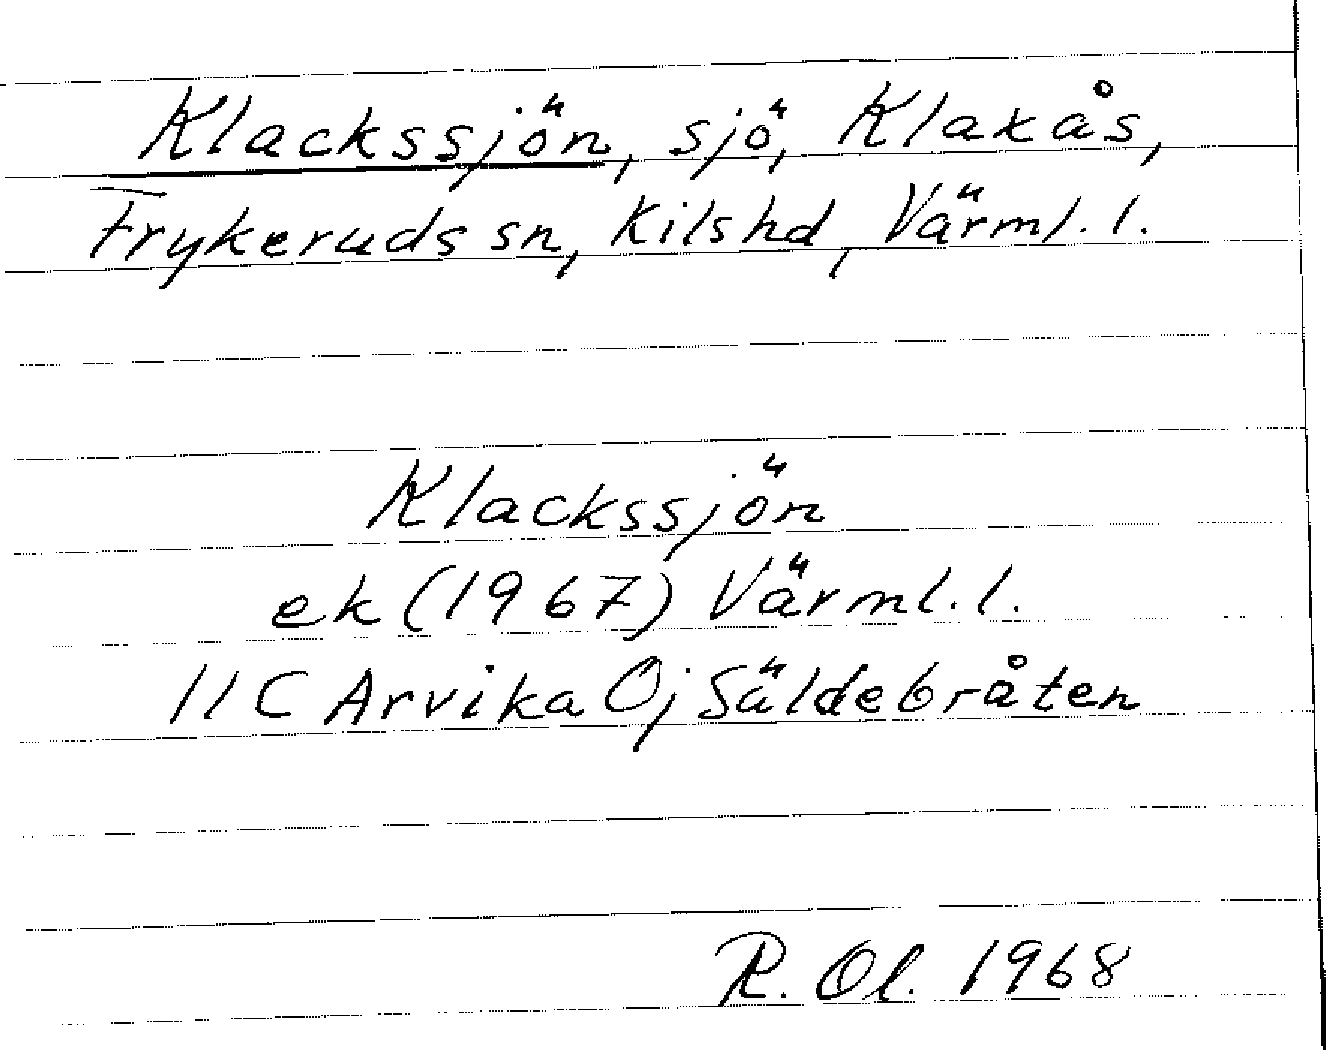 Klackssjön, sjö, Klaxås,
Frykeruds sn, Kils hd, Värml. l.
Klackssjön
ek (1967) Värml. l.
11C Arvika Öj Säldebråten
R. Ol. 1968